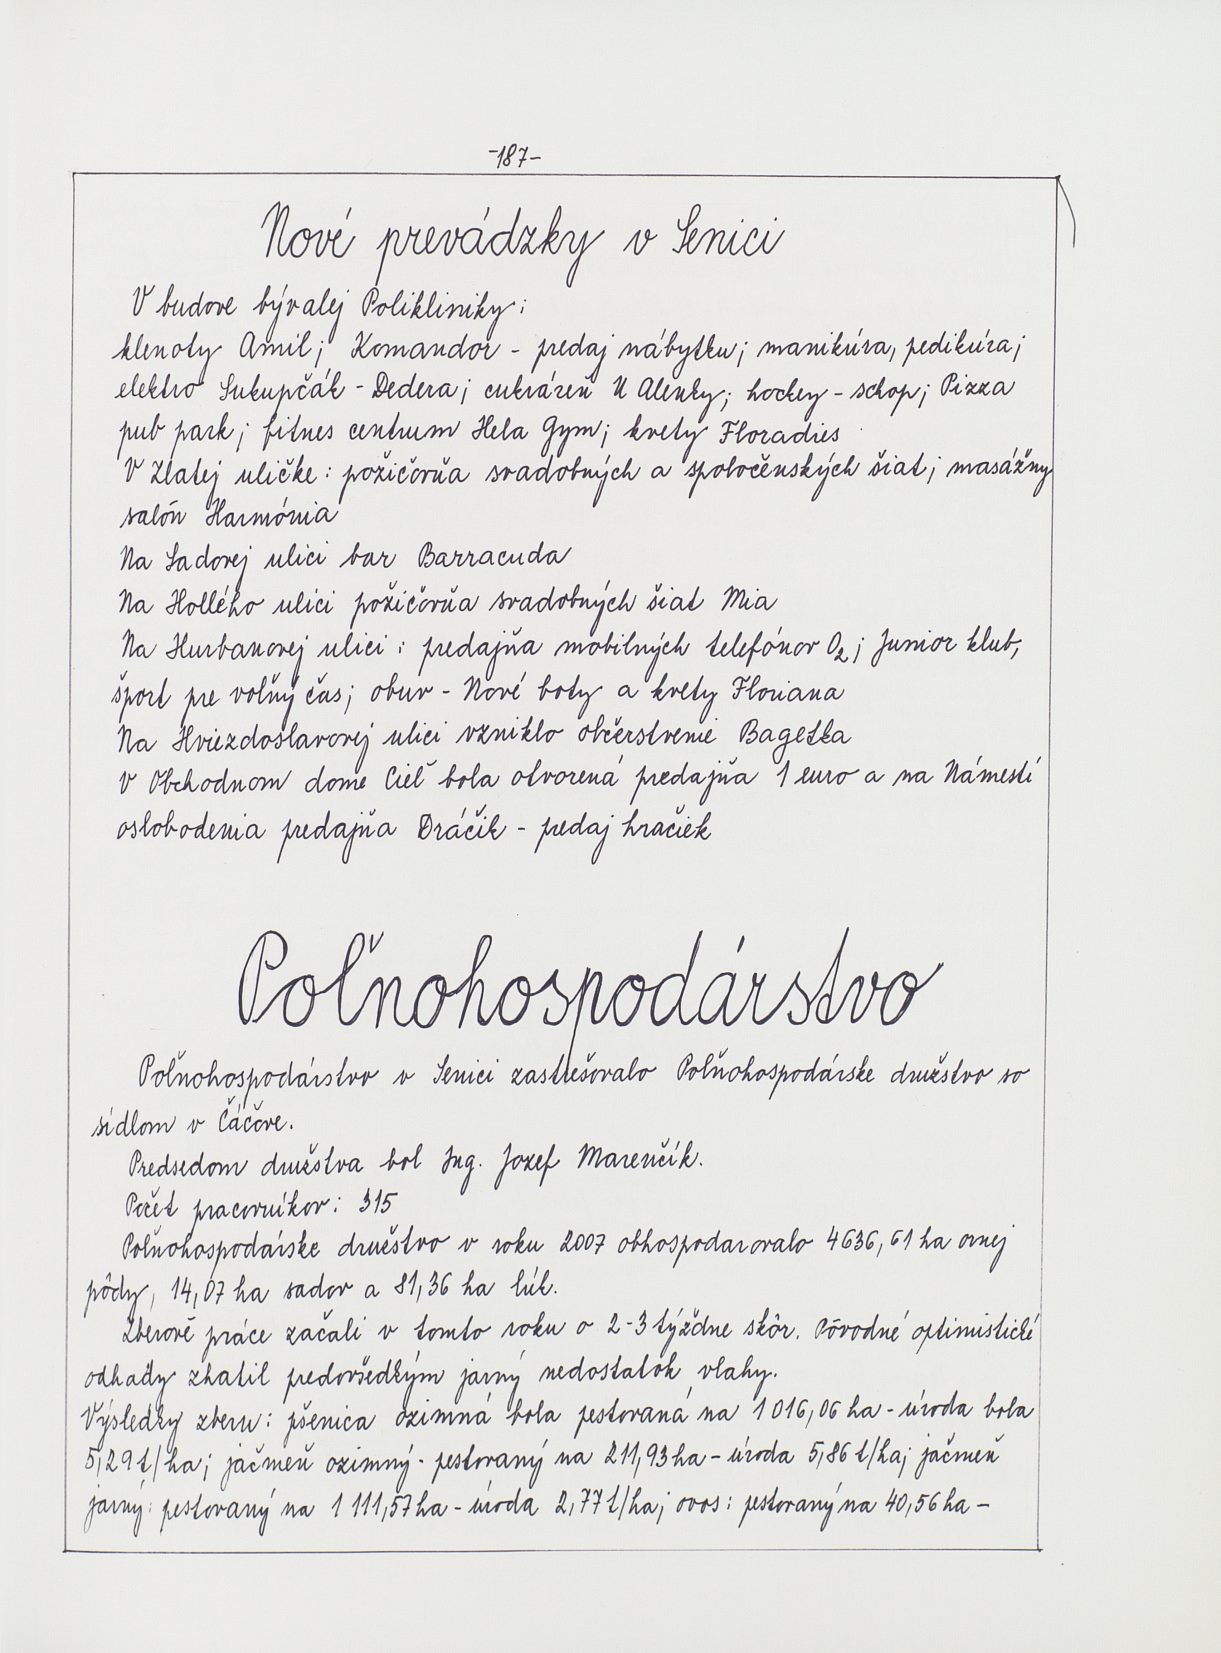 -187-
Nové prevádzky v Senici
V budove bývalej Polikliniky:
klenoty Amil; Komandor - predaj nábytku; manikúra, pedikúra;
elektro Sukupčák - Dedera; cukráreň U Alenky; hockey - schop; Pizza
pub park; fitnes centrum Hela Gym; kvety Floradies
V Zlatej uličke: požičovňa svadobných a spoločenských šiat; masážny
salón Harmónia
Na Sadovej ulici bar Barracuda
Na Hollého ulici požičovňa svadobných šiat Mia
Na Hurbanovej ulici: predajňa mobilných telefónov O2; Junior klub,
šport pre voľný čas; obuv - Nové boty a kvety Floriana
Na Hviezdoslavovej ulici vzniklo občerstvenie Bagetka
V Obchodnom dome Cieľ bola otvorená predajňa 1 euro a na Námestí
oslobodenia predajňa Dráčik - predaj hračiek
Poľnohospodárstvo
Poľnohospodárstvo v Senici zastrešovalo Poľnohospodárske družstvo so
sídlom v Čáčove.
Predsedom družstva bol Ing. Jozef Marenčík.
Počet pracovníkov: 315
Poľnohospodárske družstvo v roku 2007 obhospodarovalo 4636,61 ha ornej
pôdy, 14,07 ha sadov a 81,36 ha lúk.
Zberové práce začali v tomto roku o 2-3 týždne skôr. Pôvodné optimistické
odhady zhatil predovšedkým jarný nedostatok vlahy.
Výsledky zberu: pšenica ozimná bola pestovaná na 1 016,06 ha - úroda bola
5,29 t/ha; jačmeň ozimný - pestovaný na 211,93 ha - úroda 5,86 t/ha; jačmeň
jarný: pestovaný na 1 111,57 ha - úroda 2,77 t/ha; ovos: pestovaný na 40,56 ha -